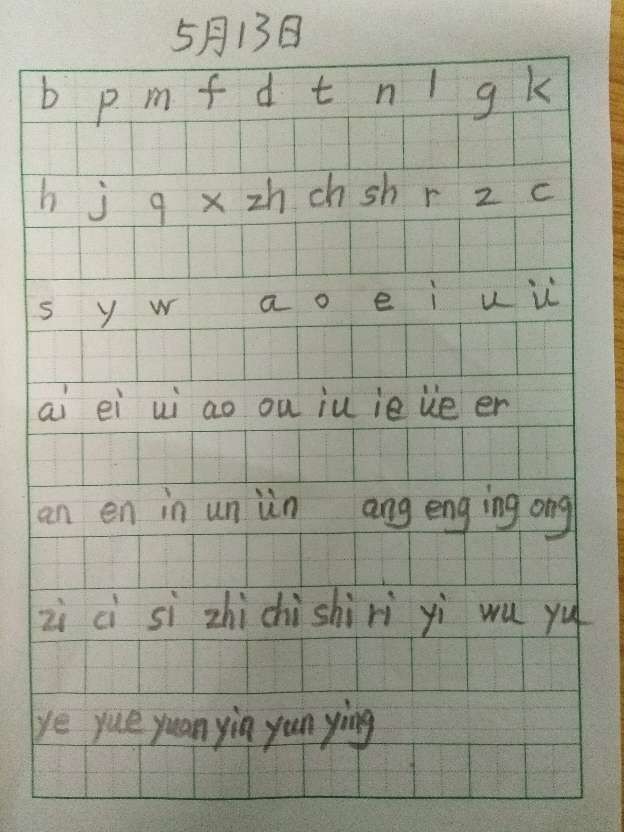 5月13日
b p m f d t n l g k
h j q x zh ch sh r z c
s y w a o e i u ü
ai ei ui ao ou iu ie üe er
an en in un ün ang eng ing ong
zi ci si zhi chi shi ri yi wu yu
ye yue yuan yin yun ying